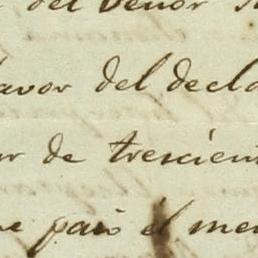 del Señor
favor del decla
de trescien
pais el me